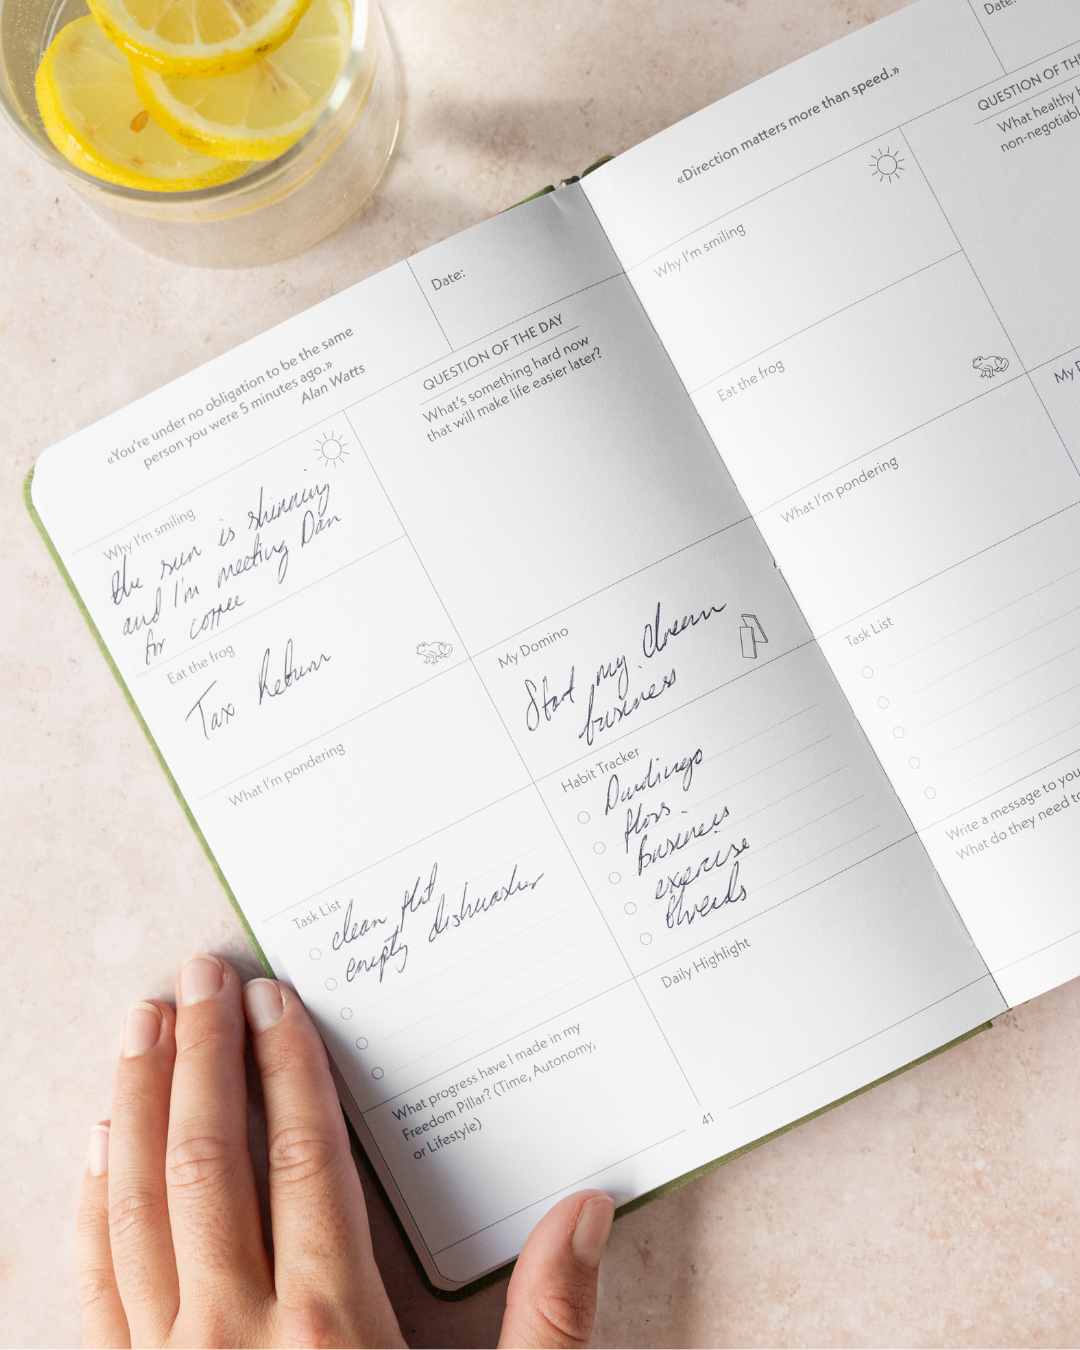 «You're under no obligation to be the same
person you were 5 minutes ago.»
Alan Watts
Date:
Why I'm smiling
the sun is shinning
and I'm meeting Dan
for coffee
Eat the frog
Tax Return
What I'm pondering
Task List
clean flat
empty dishwasher
What progress have I made in my
Freedom Pillar? (Time, Autonomy,
or Lifestyle)
QUESTION OF THE DAY
What's something hard now
that will make life easier later?
My Domino
Start my dream
business
Habit Tracker
floss
Business
exercise
threads
Daily Highlight
41
«Direction matters more than speed.»
Date:
Why I'm smiling
Eat the frog
What I'm pondering
Task List
Write a message to you
What do they need to
QUESTION OF THE
What healthy
My